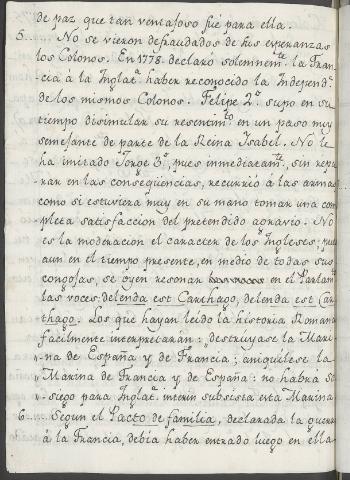 de paz que tan ventajoso fué para ella.
5 No se vieron defraudados de sus esperanzas
los Colonos. En 1778 declaró solemnem.te la Fran-
cia à la Inglat.a haber reconocido la Independ.a
de los mismos Colonos. Felipe 2.o supo en su
tiempo disimular su resentim.to en un paso muy
semejante de parte de la Reina Isabel. No le
ha imitado Jorge 3.o, pues inmediatam.te, sin repa-
rar en las conseqüencias, recurrió à las armas
como si estuviera muy en su mano tomar una com-
pleta satisfaccion del pretendido agravio. No
es la moderacion el caracter de los Ingleses; pues
aun en el tiempo presente, en medio de todas sus
congojas, se oyen resonar en el Parlam.to
las voces: delenda est Carthago, delenda est Car-
thago. Los que hayan leido la historia Romana
facilmente interpretarán: destruyase la Mari-
"na de España y de Francia; aniquilese la
"Marina de Francia y de España: no habrá so-
"siego para Inglat.a interin subsista esta Marina
6 Segun el Pacto de familia, declarada la guerra
à la Francia, debia haber entrado luego en ella